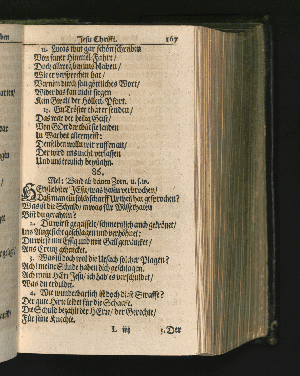 Jesu Christi. 167
11. Lucas thut gar schön schreiben
Von seiner Himmel-Fahrt/
Doch allzeit bey uns bleiben/
Wie er versprochen hat/
Vernim durch sein göttlich Wort/
Wider das kan nicht siegen
Kein Gwalt der Höllen-Pfort.
Ein Tröster that er senden/
Das war der heilig Geist/
Von GOtt der thät sie lenden
In Warheit allermeist:
Denselben wolln wir ruffen an/
Der wird uns nicht verlassen
Und uns treulich beystahn.
86.
Mel: Wend ab deinen Zorn, u.s.w.
HErtzliebster JEsu/ was hastu verbrochen/
Daß man ein solch scharff Urtheil hat gesprochen?
Was ist die Schuld/ in was für Missethaten
Bist du gerathen?
2. Du wirst gegeisselt/ und mit Dorn gekrönet/
Ins Angesicht geschlagen und verhöhnet:
Du wirst mit Essig und mit Gall geträncket/
Ans Creutz gehencket.
3. Was ist doch wol die Ursach solcher Plagen?
Ach! meine Sünde haben dich geschlagen.
Ach! mein HErr JEsu/ ich hab es verschuldet/
Was du erduldet.
4. Wie wunderbarlich ist doch diese Straffe?
Der gute Hirte leidet für die Schaafe.
Die Schuld bezahlt der HErr/ der Gerechte/
Für seine Knechte.
L iiij 5. Der